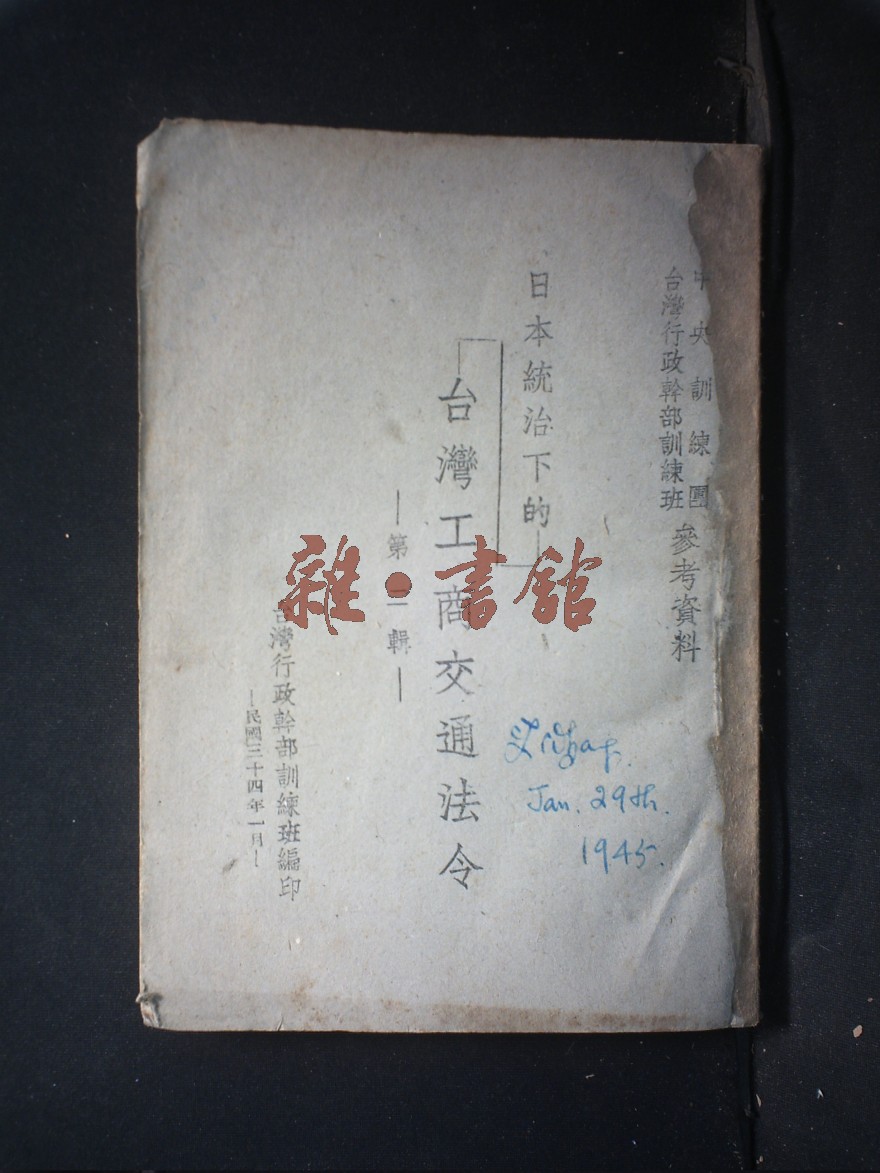 中央訓練團
台灣行政幹部訓練班
參考資料
日本統治下的
台灣工商交通法令
—第二輯—
台灣行政幹部訓練班編印
—民國三十四年一月—
Jan. 29th.
1945.
雜·書館